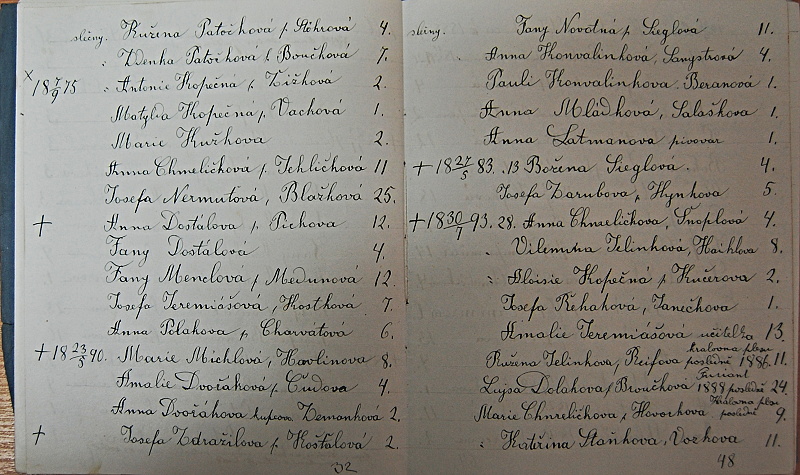 slečny. Růžena Patočková p Stöhrová 4.
Zdenka Patočková Boučková 7.
× 18 7/9 75 Antonie Kopečná p Žižková 2.
Matylda Kopečná p Vachová 1.
Marie Kužkova 2.
Anna Chmelíčková p 11
Josefa Nermuťová, Blažková 25.
+ Anna Dostálova p Píchova 12.
Fany Dostálová 4.
Fany Menclová p Medunová 12.
Josefa Jeremiášová, Kostková 7.
Anna Polakova p Charvátová 6.
+ 18 23/5 90. Marie Michlová, Havlinova 8.
Amalie Dvořákova p Čudova 4.
Anna Dvořákova Zemankova 2.
+ Josefa Zdražilova p Košťálová 2.
32
slečny. Fany Novotná p Sieglová 11.
Anna Konvalinková, Sangstrová 4.
Pauli Konvalinkova Beranová 1.
Anna Mládková, Salaškova 1.
Anna Latmanova pivovar 1.
+ 18 27/5 83. 13 Božena Sieglová. 4.
Josefa Zarubova, Hynkova 5.
+ 18 30/7 93. 28. Anna Chmelíčkova, Šnoplová 4.
Vilemína Jelínková, Haiklova 8.
Aloisie Kopečná p Kučerova 2.
Josefa Řehaková, Janečkova 1.
Amalie Jeremiášová učitelka 13.
královna plesu
Růžena Jelinkova, Reifova posledně 1886. 11.
Furiant
Lujsa Dolakova, Broučková 1888 posledně 24.
Královna plesu
Marie Chmelíčkova, Hovorkova posledně 9.
Kateřina Staňkova, Vozkova 11.
48